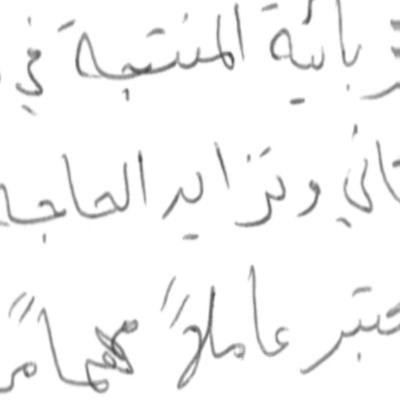 بائية المنتجة في
اني وتزايد الحاجة
عتبر عاملاً مهماً من